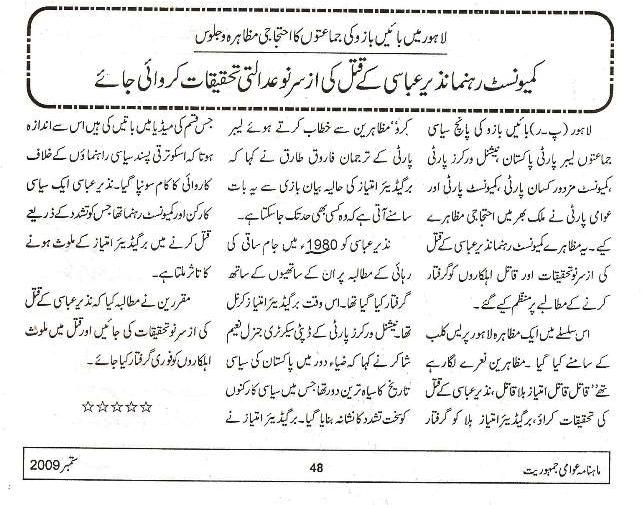 لاہور میں بائیں بازو کی جماعتوں کا احتجاجی مظاہرہ و جلوس
کمیونسٹ رہنما نذیر عباسی کے قتل کی از سر نو عدالتی تحقیقات کروائی جائے
لاہور (پ۔ر) بائیں بازو کی پانچ سیاسی
جماعتوں لیبر پارٹی پاکستان نیشنل ورکرز پارٹی
،کمیونسٹ مزدور کسان پارٹی، کمیونسٹ پارٹی اور
عوامی پارٹی نے ملک بھر میں احتجاجی مظاہرے
کیے۔ یہ مظاہرے کمیونسٹ رہنما نذیر عباسی کے قتل
کی از سر نو تحقیقات اور قاتل اہلکاروں کو گرفتار
کرنے کے مطالبے پر منظم کیے گئے۔
اس سلسلے میں ایک مظاہرہ لاہور پریس کلب
کے سامنے کیا گیا۔ مظاہرین نعرے لگا رہے
تھے" قاتل قاتل امتیاز بلا قاتل، نذیر عباسی کے قتل
کی تحقیقات کراؤ، بریگیڈیئر امتیاز بلا کو گرفتار
کرو" مظاہرین سے خطاب کرتے ہوئے لیبر
پارٹی کے ترجمان فاروق طارق نے کہا کہ
بریگیڈیئر امتیاز کی حالیہ بیان بازی سے یہ بات
سامنے آتی ہے کہ وہ کسی بھی حد تک جا سکتا ہے۔
نذیر عباسی کو 1980ء میں جام ساقی کی
رہائی کے مطالبہ پر ان کے ساتھیوں کے ساتھ
گرفتار کیا گیا تھا۔ اس وقت بریگیڈیئر امتیاز کرنل
تھا۔ نیشنل ورکرز پارٹی کے ڈپٹی سیکرٹری جنرل نعیم
شاکر نے کہا کہ ضیاء دور میں پاکستان کی سیاسی
تاریخ کا سیاہ ترین دور تھا جس میں سیاسی کارکنوں
کو سخت تشدد کا نشانہ بنایا گیا۔ بریگیڈیئر امتیاز نے
جس قسم کی میڈیا میں باتیں کی ہیں اس سے اندازہ
ہوتا کہ اسکو ترقی پسند سیاسی راہنماؤں کے خلاف
کاروائی کا کام سونپا گیا۔ نذیر عباسی ایک سیاسی
کارکن اور کمیونسٹ رہنما تھا جس کو تشدد کے ذریعے
قتل کرنے میں بریگیڈیئر امتیاز کے ملوث ہونے
کا تاثر ملتا ہے۔
مقررین نے مطالبہ کیا کہ نذیر عباسی کے قتل
کی از سر نو تحقیقات کی جائیں اور قتل میں ملوث
اہلکاروں کو فوری گرفتار کیا جائے۔
☆☆☆☆☆
ماہنامہ عوامی جمہوریت 48 ستمبر 2009